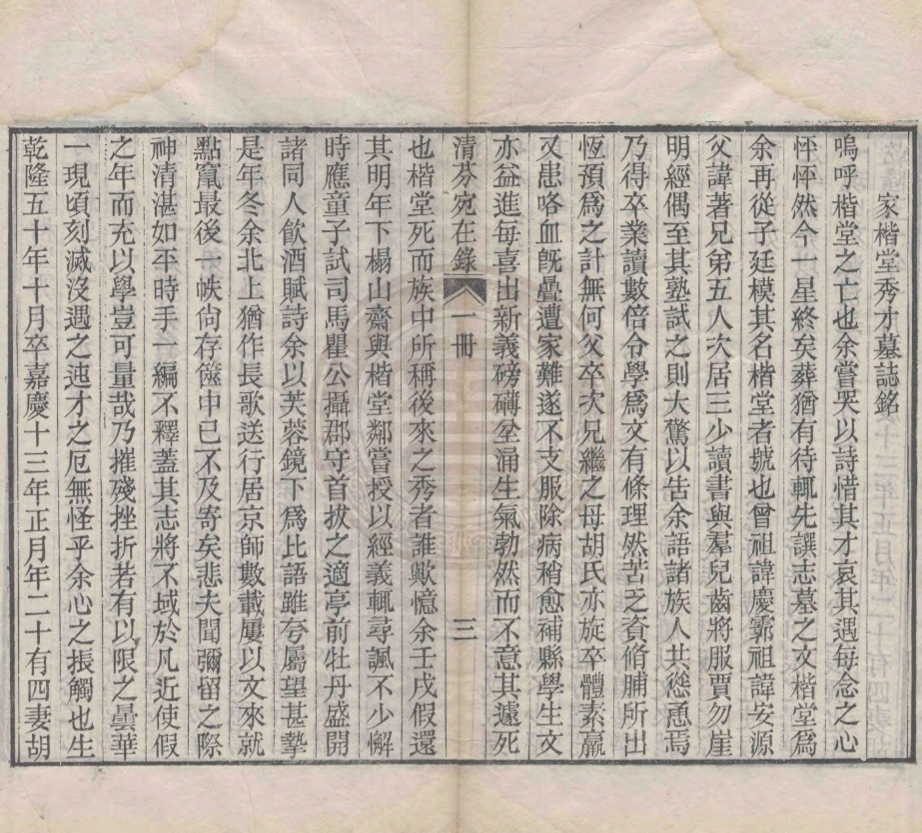 家楷堂秀才墓誌銘
嗚呼楷堂之亡也余嘗哭以詩惜其才哀其遇每念之心
怦怦然今一星終矣葬猶有待輒先譔志墓之文楷堂爲
余再從子廷模其名楷堂者號也曾祖諱慶霨祖諱安源
父諱著兄弟五人次居三少讀書與羣兒齒將服賈勿崖
明經偶至其塾試之則大驚以告余語諸族人共慫恿焉
乃得卒業讀數倍令學爲文有條理然苦乏資脩脯所出
恆預爲之計無何父卒次兄繼之母胡氏亦旋卒體素羸
又患咯血旣疊遭家難遂不支服除病稍愈補縣學生文
亦益進每喜出新義磅礴坌涌生氣勃然而不意其遽死
清芬宛在錄 一冊 三
也楷堂死而族中所稱後來之秀者誰歟憶余壬戌假還
其明年下榻山齋與楷堂鄰嘗授以經義輒尋諷不少懈
時應童子試司馬瞿公攝郡守首拔之適亭前牡丹盛開
諸同人飮酒賦詩余以芙蓉鏡下爲比語雖夸屬望甚摯
是年冬余北上猶作長歌送行居京師數載屢以文來就
點竄最後一帙尙存篋中已不及寄矣悲夫聞彌留之際
神清湛如平時手一編不釋蓋其志將不域於凡近使假
之年而充以學豈可量哉乃摧殘挫折若有以限之曇華
一現頃刻滅沒遇之迍才之厄無怪乎余心之振觸也生
乾隆五十年十月卒嘉慶十三年正月年二十有四妻胡